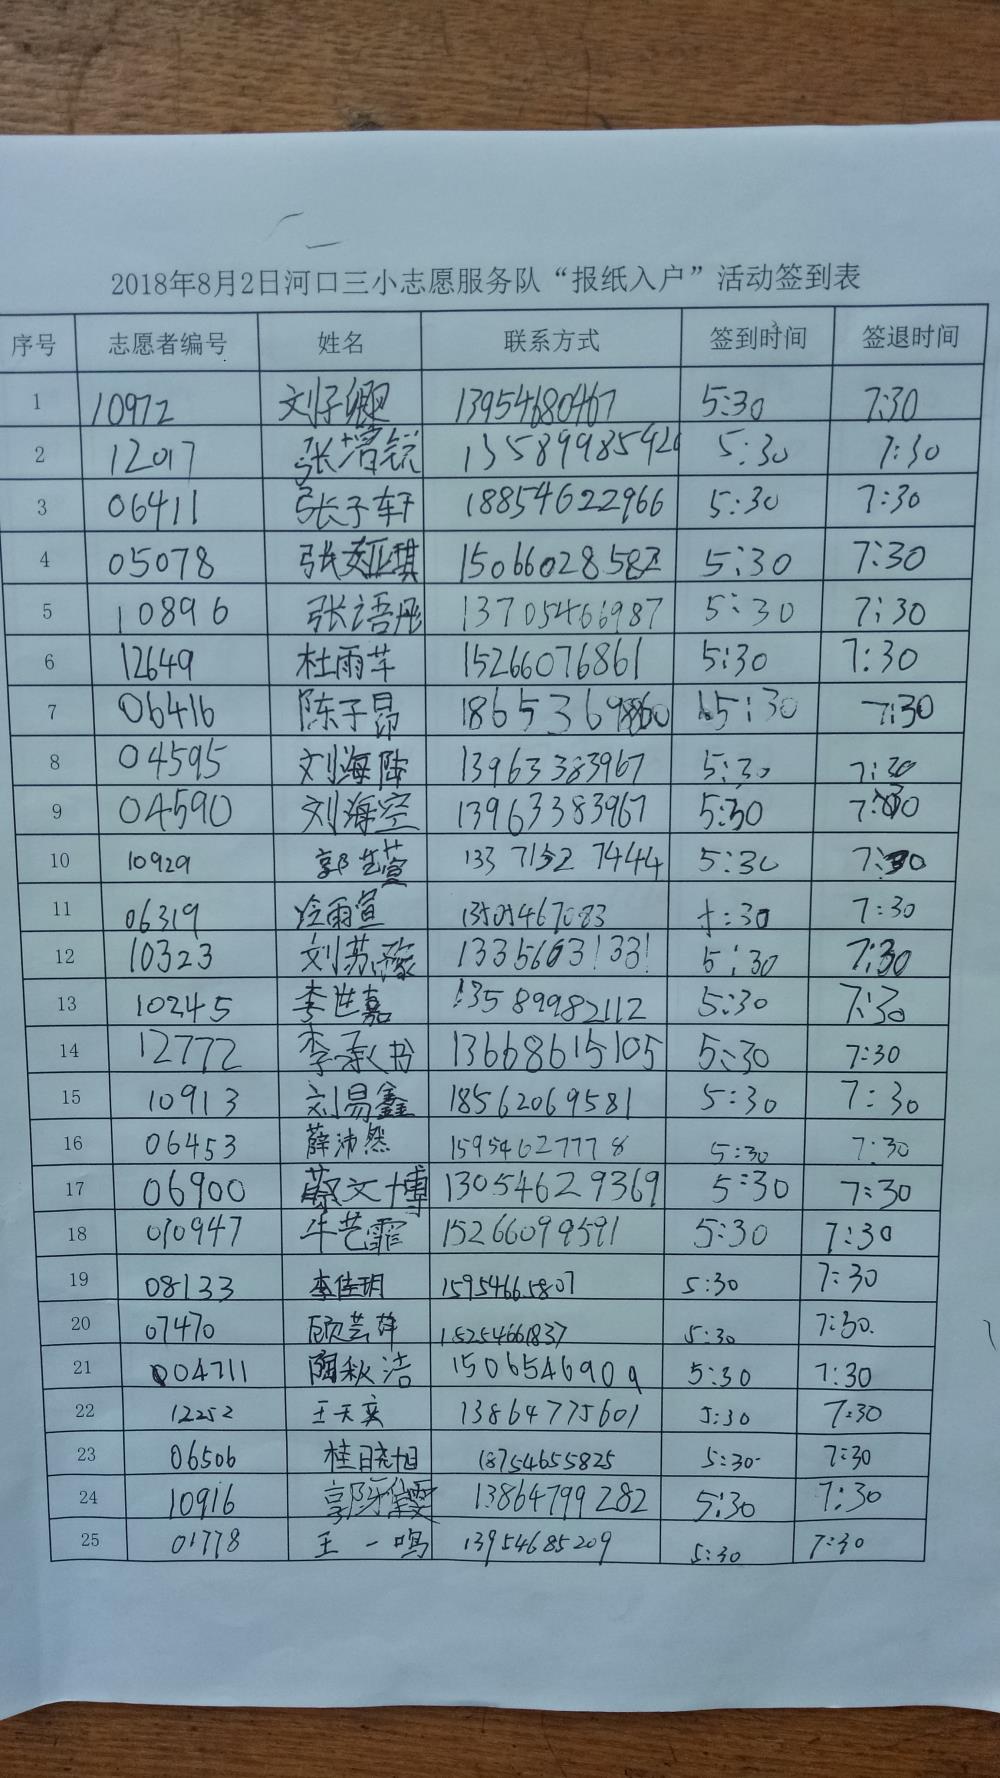 2018年8月2日河口三小志愿服务队“报纸入户”活动签到表
序号 志愿者编号 姓名 联系方式 签到时间 签退时间
1 10972 13954680467 5:30 7:30
2 12017 张增锐 5:30 7:30
3 06411 张子轩 18854622966 5:30 7:30
4 05078 15066028582 5:30 7:30
5 10896 张语彤 13705466987 5:30 7:30
6 12649 15266076861 5:30 7:30
7 06416 陈子昂 5:30 7:30
8 04595 刘海陆 13963383967 5:30 7:30
9 04590 刘海空 13963383967 5:30 7:30
10 10929 郭艺萱 13371527444 5:30 7:30
11 06319 冷雨宣 13505467083 5:30 7:30
12 10323 13356631331 5:30 7:30
13 10245 李世嘉 13589982112 5:30 7:30
14 12772 李承书 13668615105 5:30 7:30
15 10913 刘易鑫 18562069581 5:30 7:30
16 06453 薛沛然 15954627778 5:30 7:30
17 06900 蔡文博 13054629369 5:30 7:30
18 010947 牛艺霏 15266099591 5:30 7:30
19 08133 李佳玥 15954665807 5:30 7:30
20 07470 15254661837 5:30 7:30.
21 004711 陶秋浩 1506546909 5:30 7:30
22 12252 王天奕 13864775601 5:30 7:30
23 06506 桂晓旭 18754655825 5:30 7:30
24 10916 13864799282 5:30 7:30
25 01778 王一鸣 13954685209 5:30 7:30